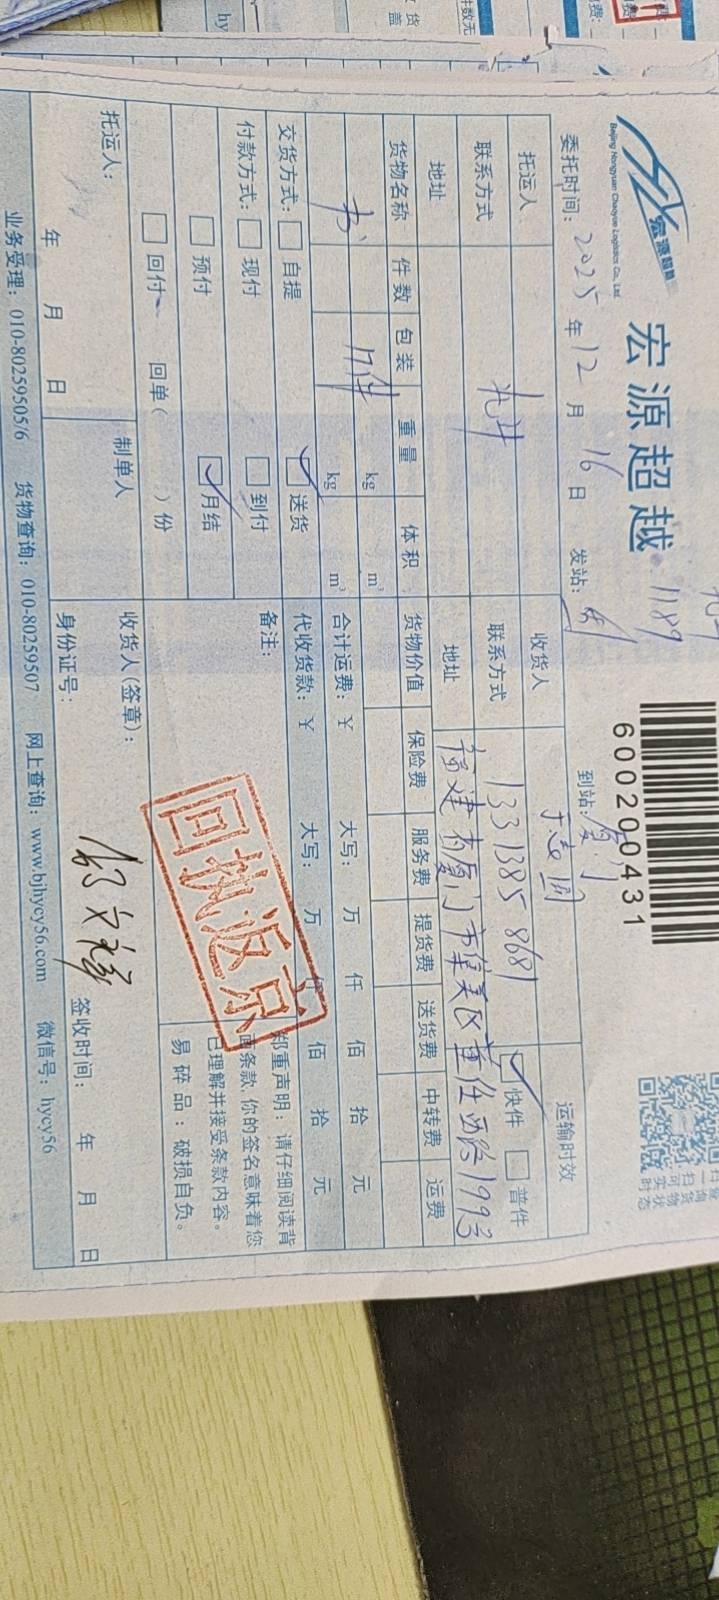 宏源超越
Beijing Hongyuan Chaoyue Logistics Co., Ltd.
宏源超越 1189
600200431
委托时间: 2025 年 12 月 16 日 发站: 到站: 厦门 运输时效
托运人 收货人 于志国 快件 普件
联系方式 联系方式 13313858681
地址 地址 福建省厦门市集美区董任西路1993
货物名称 件数 包装 重量 体积 货物价值 保险费 服务费 提货费 送货费 中转费 运费
书 17件 kg m³
kg m³ 合计运费: ¥ 大写: 万 仟 佰 拾 元
交货方式: 自提 送货 代收货款: ¥ 大写: 万 仟 佰 拾 元
付款方式: 现付 到付 备注:
预付 月结
回付 回单( )份
回执返京
郑重声明: 请仔细阅读背
面条款, 你的签名意味着您
已理解并接受条款内容。
易碎品: 破损自负。
托运人: 制单人 收货人(签章):
年 月 日 身份证号: 签收时间: 年 月 日
业务受理: 010-80259505/6 货物查询: 010-80259507 网上查询: www.bjhycy56.com 微信号: hycy56